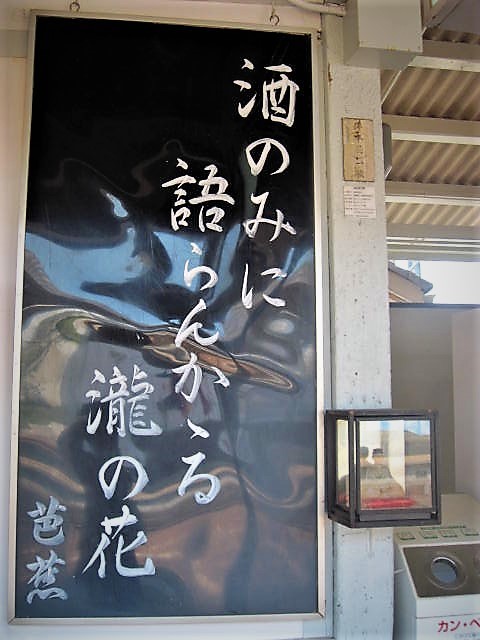 酒のみに
語らんかゝる
瀧の花
芭蕉
カン・ペ